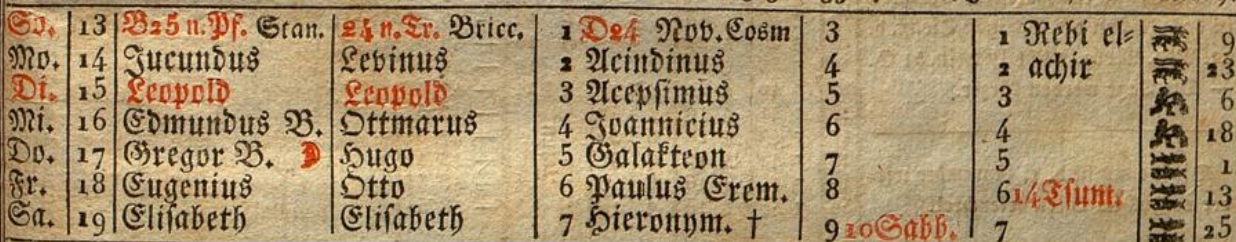 So. 13 B25 n. Pf. Stan. 24 n. Tr. Bricc. 1 D24 Nov. Cosm 3 1 Rebi el= 9
Mo. 14 Jucundus Levinus 2 Acindinus 4 2 achir 23
Di. 15 Leopold Leopold 3 Acepsimus 5 3 6
Mi. 16 Edmundus B. Ottmarus 4 Joannicius 6 4 18
Do. 17 Gregor B. Hugo 5 Galakteon 7 5 1
Fr. 18 Eugenius Otto 6 Paulus Erem. 8 6 14 Tsum. 13
Sa. 19 Elisabeth Elisabeth 7 Hieronym. † 9 10 Sabb. 7 25